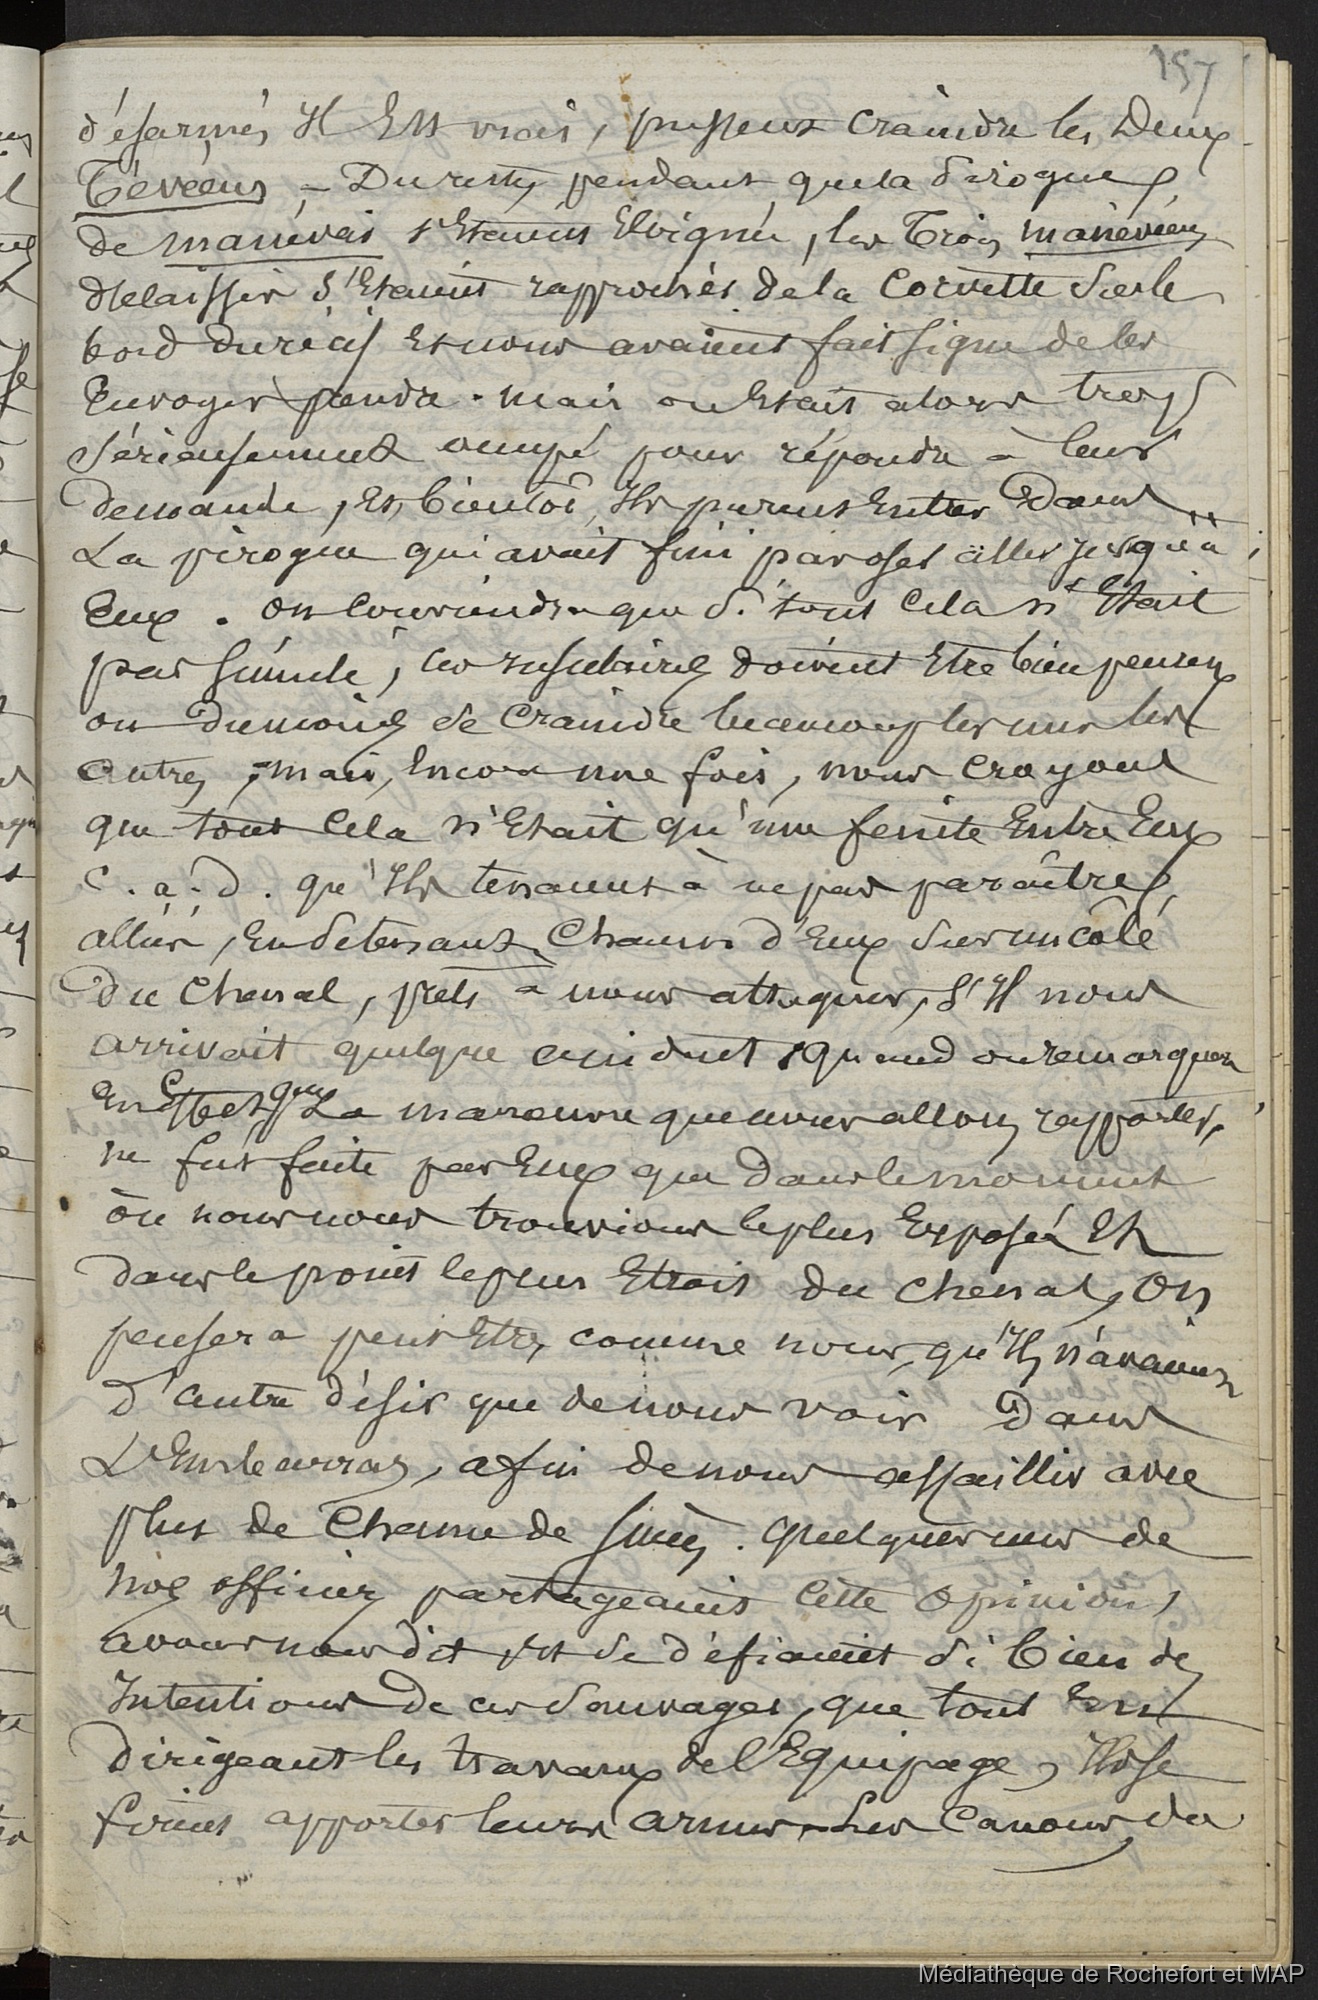 157
désarmés Il Est vrai, pussent craindre les Deux
Tévéens, - Du reste, pendant que la Pirogue
de manévai s'Etaient Eloignée, les Trois manévéens
délaissés s'Etaient rapprochés de la Corvette sur le
bord du récif Et nous avaient fait signe de les
Envoyer prendre. mais on Etait alors trop
sérieusement occupé pour répondre à leur
demande, Et, bientôt, Ils purent Entrer Dans
La pirogue qui avait fini par oser aller jusqu'à
Eux. on conviendra que si tout cela n'Etait
pas simulé, ces insulaires doivent Etre bien peureux
ou Du moins se craindre beaucoup les uns les
autres, - mais, Encore une fois, nous croyons
que tout cela n'Etait qu'une feinte Entre Eux
C. à. d. qu'Ils tenaient à ne pas paraître
alliés, En se tenant, Chacun d'Eux sur un côté
Du Chenal, prêts à nous attaquer, s'Il nous
arrivait quelque accident, quand on remarquera
En Effet que La manoeuvre que nous allons rapporter,
ne fut faite par Eux que Dans le moment
où nous nous trouvions le plus Exposés Et
dans le point le plus Etroit du chenal, On
pensera peut Etre, comme nous, qu'Ils n'avaient
D'autre désir que de nous voir Dans
L'Embarras, afin de nous assaillir avec
plus de Chance de succès. quelques uns de
nos officiers partageaient Cette Opinion,
avons nous dit, Et se défiaient si bien des
Intentions De ces Sauvages, que tout En
dirigeant les travaux de l'Equipage, Ils se
firent apporter leurs armes. Les Canons de
Médiathèque de Rochefort et MAP